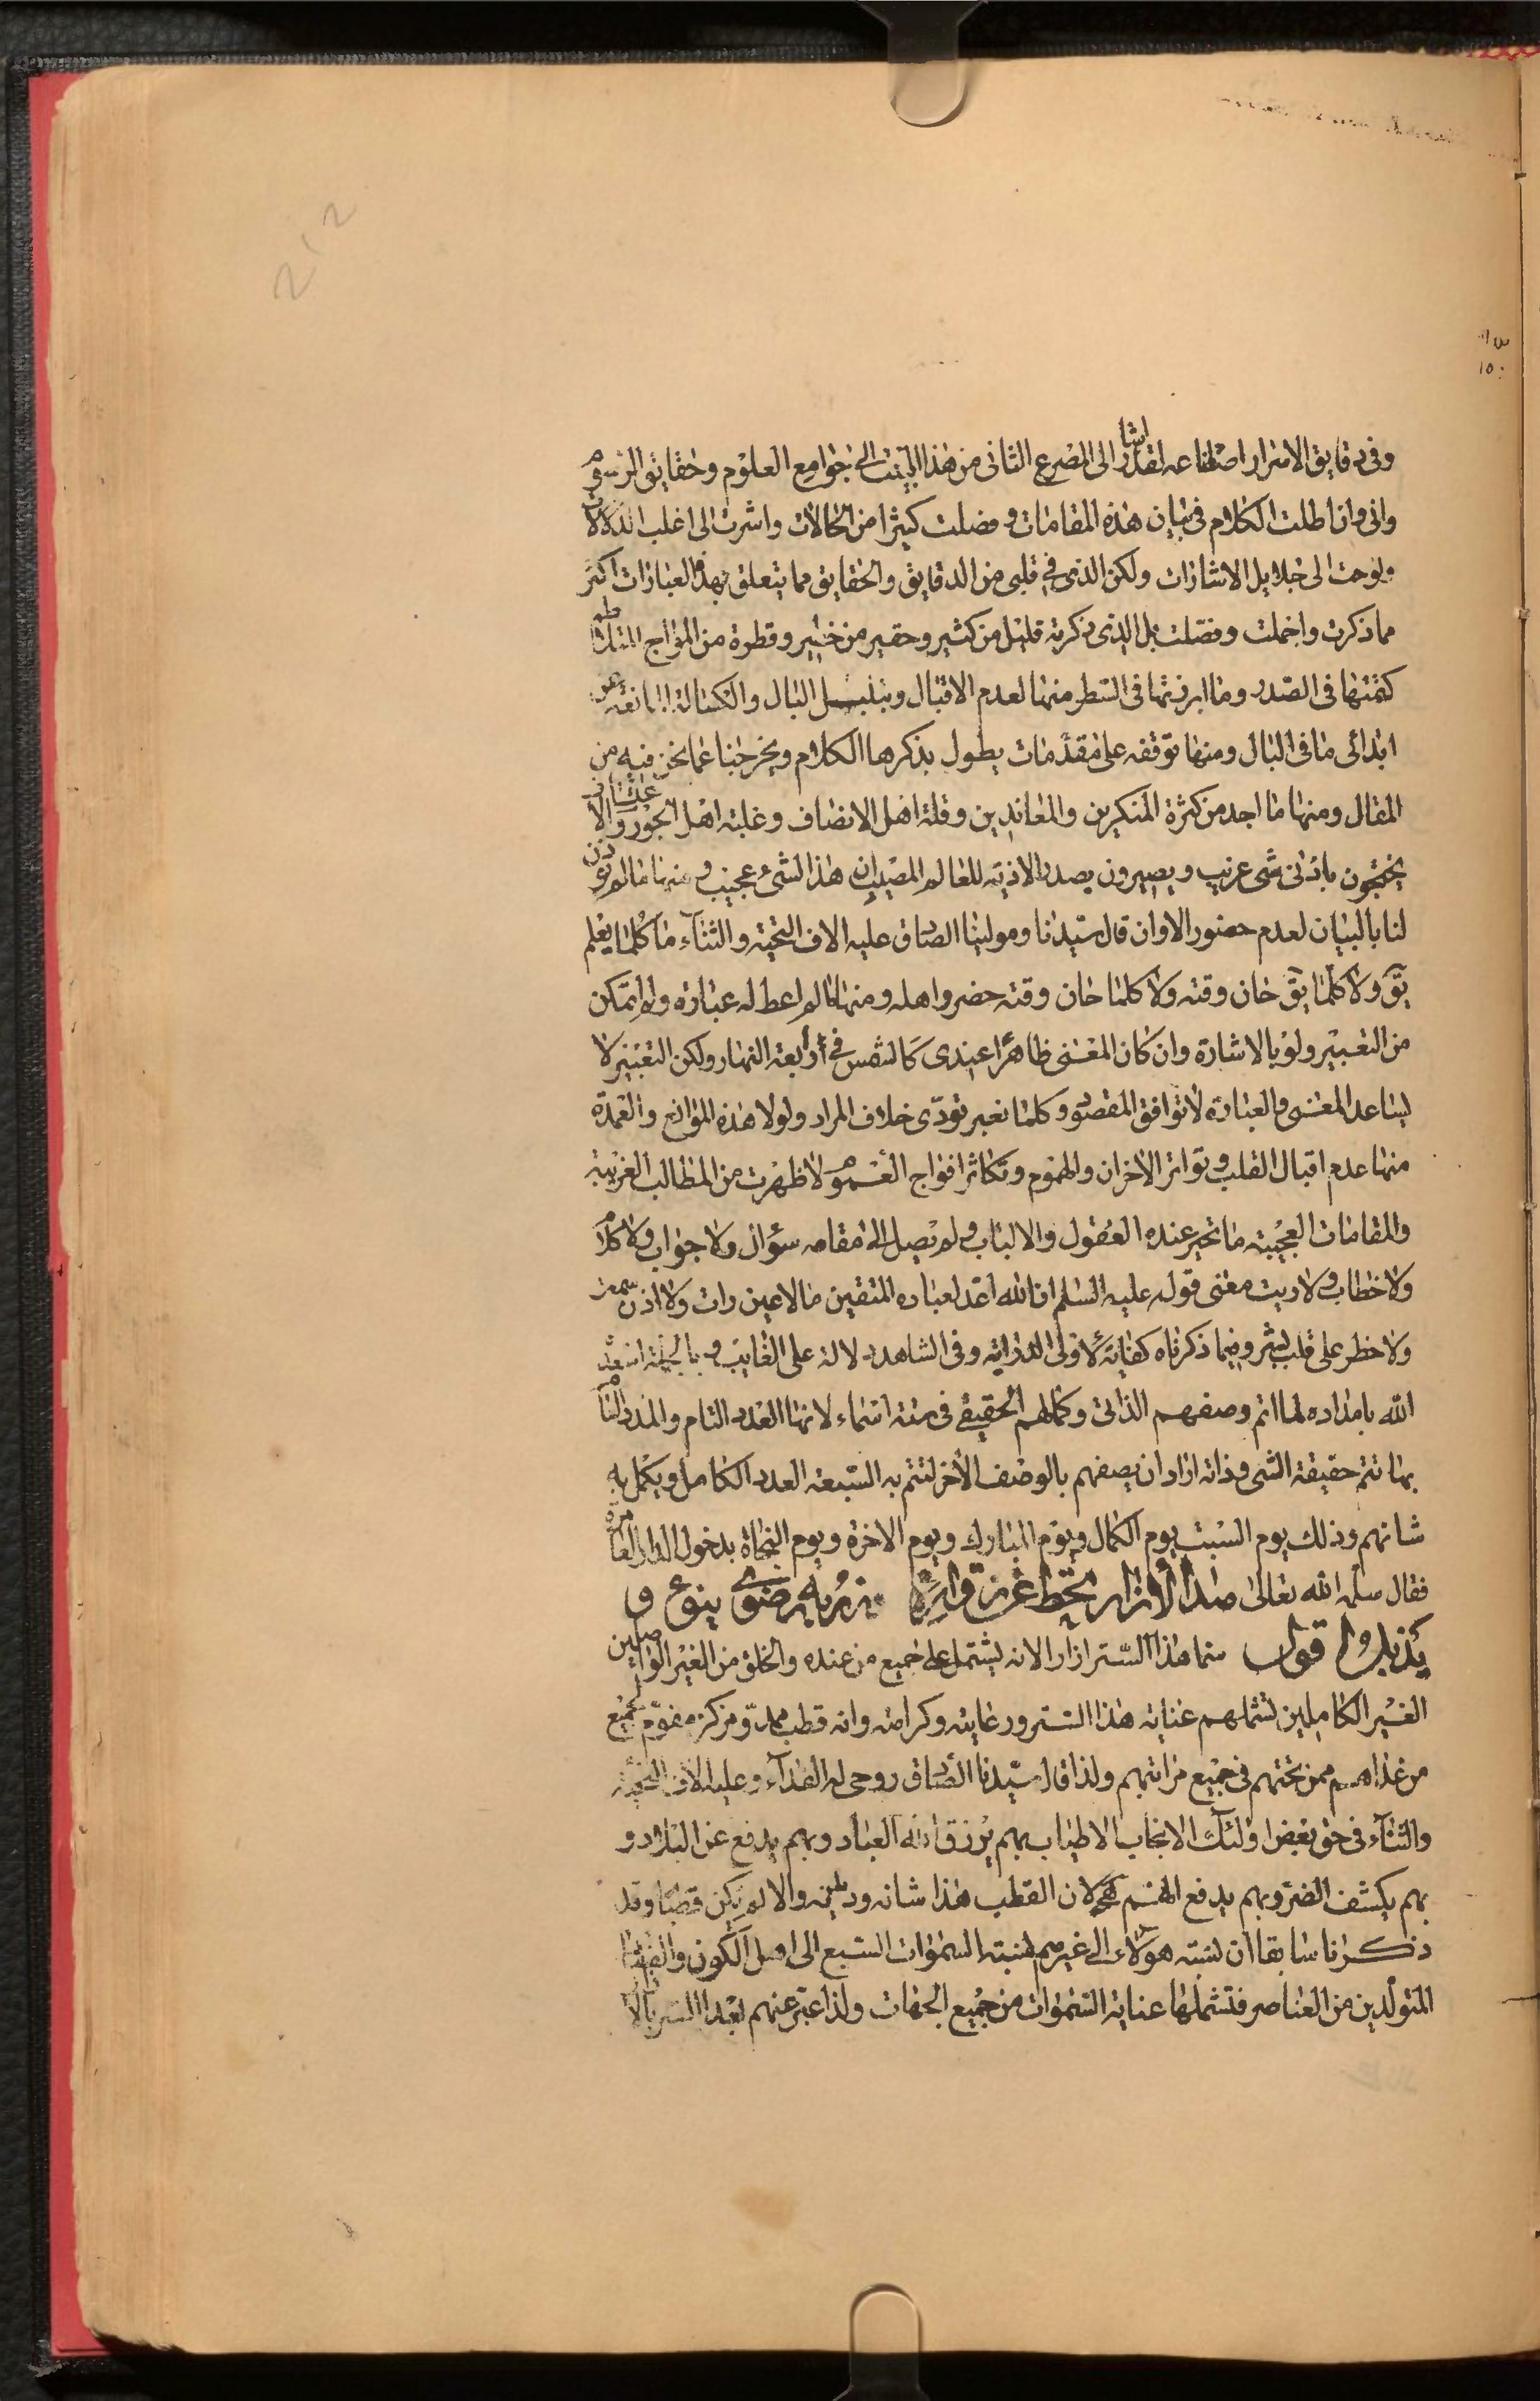 وفى دقايق الاسرار اصقاعه لقد اشار الى المصرع الثانى من هذا البيت الى جوامع العلوم وحقايق الرسوم
وانى وان اطلت الكلام فى بيان هذه المقامات وفصلت كثيرا من الحالات واشرت الى اغلب الدلالات
ولوحت الى جلايل الاشارات ولكن الذى فى قلبى من الدقايق والحقايق مما يتعلق بهذه العبارات اكثر
مما ذكرت واجملت وفصلت بل الذى ذكرته قليل من كثير وحقير من خبير وقطرة من امواج المتلاطم
كتمتها فى الصدر وما ابرزتها فى السطر منها لعدم الاقبال وتبلبل البال والكسالة المانعة عن
ابدائى ما فى البال ومنها توقفه على مقدمات يطول بذكرها الكلام ويخرجنا عما نحن فيه من
المقال ومنها ما اجد من كثرة المنكرين والمعاندين وقلة اهل الانصاف وغلبة اهل الجور والاعتساف
يحتجون بادنى شى غريب ويصيرون بصدد الاذية للعالم المصيب ان هذا لشىء عجيب ومنها ما لم يؤذن
لنا بالبيان لعدم حضور الاوان قال سيدنا ومولينا الصادق عليه الاف التحية والثناء ما كلما يعلم
يق ولا كلما يق حان وقته ولا كلما حان وقته حضر اهله ومنها ما لم اعط له عبارة ولم اتمكن
من التعبير ولو بالاشارة وان كان المعنى ظاهرا عندى كالشمس فى رابعة النهار ولكن التعبير لا
يساعد المعنى والعبارة لا توافق المقصود وكلما نعبر تودى خلاف المراد ولولا هذه الموانع والعمدة
منها عدم اقبال القلب وتواتر الاحزان والهموم وتكاثر افواج الغموم لاظهرت من المطالب الغريبة
والمقامات العجيبة ما تحير عنده العقول والالباب ولم يصل الى مقامه سؤال ولا جواب ولا كلام
ولا خطاب ولاريت معنى قوله عليه السلم ان الله اعد لعباده المتقين ما لا عين رات ولا اذن سمعت
ولا خطر على قلب بشر وفيما ذكرناه كفاية لاولى الدراية وفى الشاهد دلالة على الغايب وبالجملة اسعده
الله بامداده لما اتم وصفهم الذاتى وكمالهم الحقيقى فى ستة اسماء لانها العدد التام والمدد التام
بها تتم حقيقة الشى وذاته اراد ان يصفهم بالوصف الاخر لتتم به السبعة العدد الكامل ويكمل به
شانهم وذلك يوم السبت يوم الكمال ويوم المبارك ويوم الاخرة ويوم النجاة بدخول الدار العامرة
فقال سلمه الله تعالى هذا الازار يحط عن زواره وزر به رضوى ينوء و
يذبل اقول سما هذا الستر ازار الانه يشتمل على جميع من عنده والخلق من الغير الواصلين
الغير الكاملين تشملهم عناية هذا الستر ورعايته وكرامته وانه قطب ممد ومركز مقوم لجميع
من عداهم ممن تحتهم فى جميع مراتبهم ولذا قال سيدنا الصادق روحى له الفداء وعليه الاف التحية
والثناء فى حق بعض اولئك الانجاب الاطياب بهم يرزق الله العباد وبهم يدفع عن البلاد و
بهم يكشف الضر وبهم يدفع الهم لان القطب هذا شانه ودينه والا لم يكن قطبا وقد
ذكرنا سابقا ان نسبة هولاء الى غيرهم نسبة السموات السبع الى اهل الكون والفساد
المتولدين من العناصر فتشملها عناية السموات من جميع الجهات ولذا عبر عنهم بهذا الستر بالازار